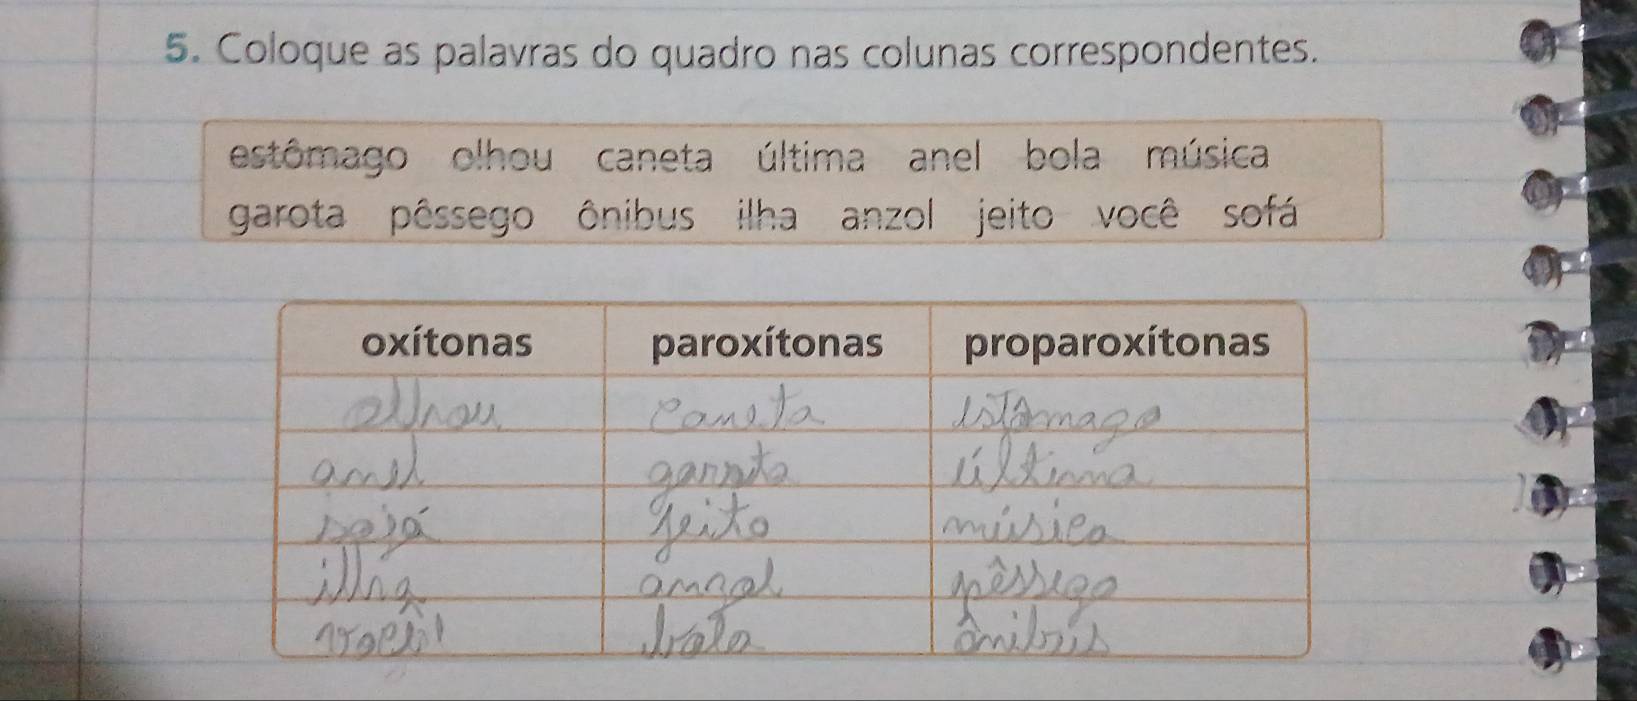 5. Coloque as palavras do quadro nas colunas correspondentes.
estômago olhou caneta última anel bola música
garota pêssego ônibus ilha anzol jeito você sofá
oxítonas paroxítonas proparoxítonas
olhou caneta estômago
anel garota última
sofá jeito música
ilha anzol pêssego
você bola ônibus